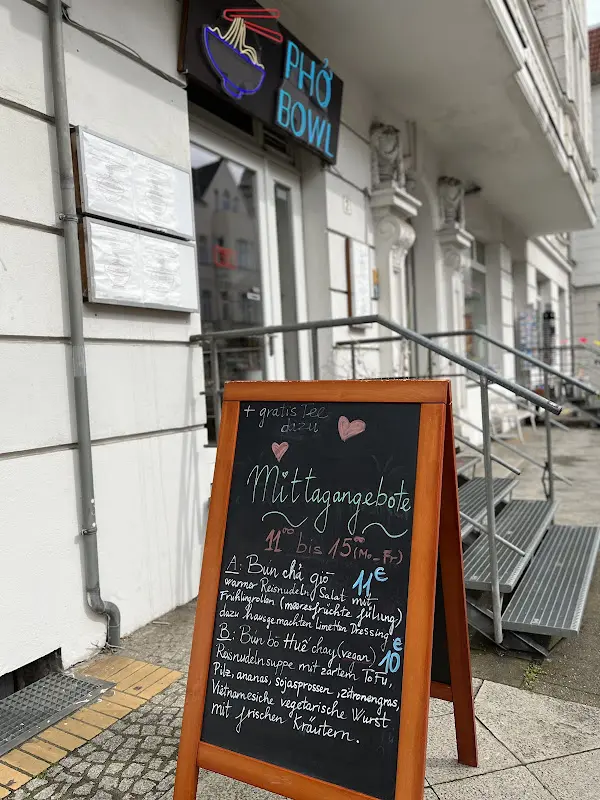 PHỞ
BOWL
+ gratis Tee
dazu
Mittagangebote
11⁰⁰ bis 15⁰⁰ (Mo-Fr)
A: Bun chả giò 11€
warmer Reisnudeln Salat mit
Frühlingrollen (meeresfrüchte füllung)
dazu hausgemachten limetten Dressing
B: Bún bò Huế chay (vegan) 10€
Reisnudelnsuppe mit zartem Tofu,
Pilz, ananas, sojasprossen, zitronengras,
Vietnamesiche vegetarische Wurst
mit frischen Kräutern.